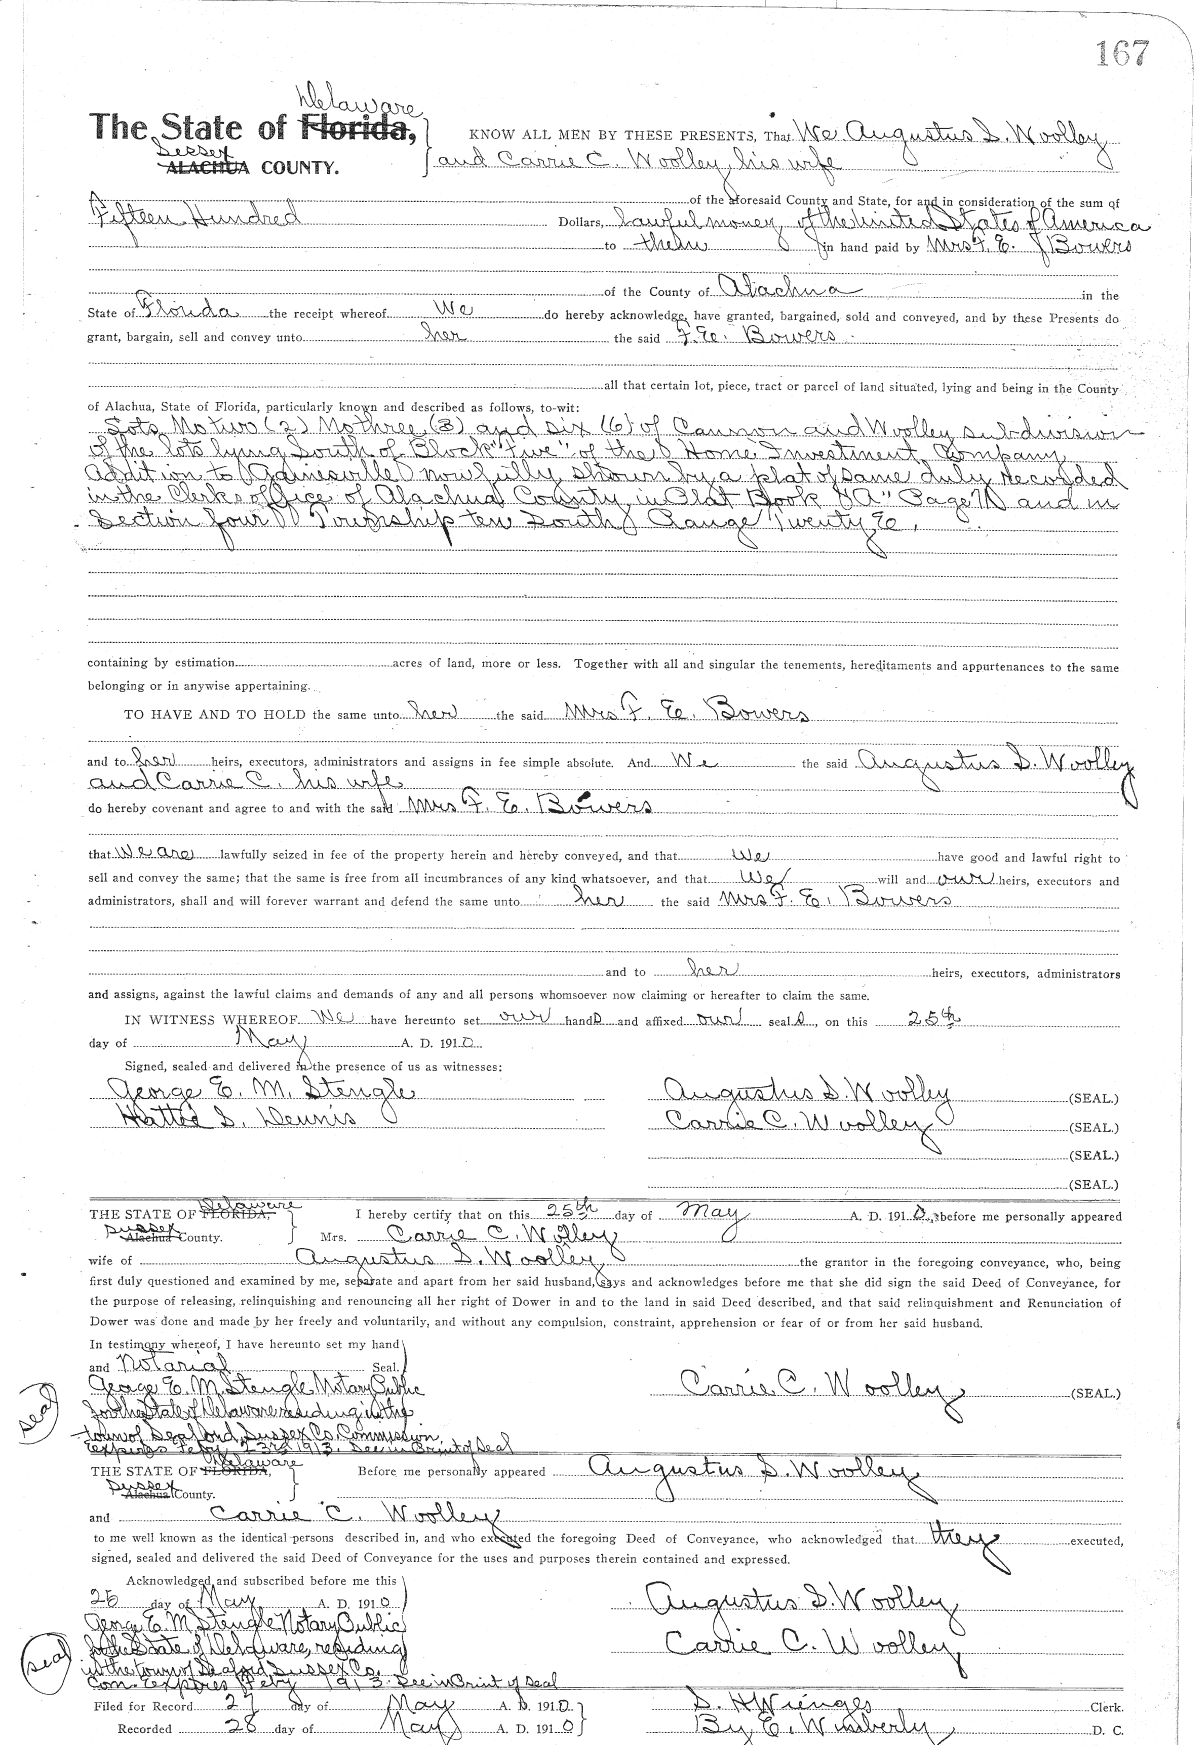 167
Delaware
The State of Florida,
KNOW ALL MEN BY THESE PRESENTS, That We Augustus S. Woolley
Sussex
ALACHUA COUNTY.
and Carrie C. Woolley, his wife
of the aforesaid County and State, for and in consideration of the sum of
Fifteen Hundred Dollars, lawful money of the United States of America
to them in hand paid by Mrs F. E. Bowers
of the County of Alachua in the
State of Florida the receipt whereof We do hereby acknowledge, have granted, bargained, sold and conveyed, and by these Presents do
grant, bargain, sell and convey unto her the said F. E. Bowers
all that certain lot, piece, tract or parcel of land situated, lying and being in the County
of Alachua, State of Florida, particularly known and described as follows, to-wit:
Lots No two (2) No three (3) and six (6) of Cannon and Woolley subdivision
of the lots lying South of Block "Five" of the Home Investment Company
addition to Gainesville now fully shown by a plat of same duly recorded
in the Clerks office of Alachua County in Plat Book "A" Page 71 and in
Section four Township ten South Range Twenty E.
containing by estimation acres of land, more or less. Together with all and singular the tenements, hereditaments and appurtenances to the same
belonging or in anywise appertaining.
TO HAVE AND TO HOLD the same unto her the said Mrs F. E. Bowers
and to her heirs, executors, administrators and assigns in fee simple absolute. And We the said Augustus S. Woolley
and Carrie C. his wife
do hereby covenant and agree to and with the said Mrs F. E. Bowers
that We are lawfully seized in fee of the property herein and hereby conveyed, and that we have good and lawful right to
sell and convey the same; that the same is free from all incumbrances of any kind whatsoever, and that We will and our heirs, executors and
administrators, shall and will forever warrant and defend the same unto her the said Mrs F. E. Bowers
and to her heirs, executors, administrators
and assigns, against the lawful claims and demands of any and all persons whomsoever now claiming or hereafter to claim the same.
IN WITNESS WHEREOF We have hereunto set our hands and affixed our seals, on this 25th
day of May A. D. 1910.
Signed, sealed and delivered in the presence of us as witnesses:
George E. M. Stengle Augustus S. Woolley (SEAL.)
Hattie S. Dennis Carrie C. Woolley (SEAL.)
(SEAL.)
(SEAL.)
Delaware
THE STATE OF FLORIDA, I hereby certify that on this 25th day of May A. D. 1910, before me personally appeared
Sussex
Alachua County. Mrs. Carrie C. Wolley
wife of Augustus S. Woolley the grantor in the foregoing conveyance, who, being
first duly questioned and examined by me, separate and apart from her said husband, says and acknowledges before me that she did sign the said Deed of Conveyance, for
the purpose of releasing, relinquishing and renouncing all her right of Dower in and to the land in said Deed described, and that said relinquishment and Renunciation of
Dower was done and made by her freely and voluntarily, and without any compulsion, constraint, apprehension or fear of or from her said husband.
In testimony whereof, I have hereunto set my hand
and Notarial Seal.
George E. M. Stengle Notary Public Carrie C. Woolley (SEAL.)
seal
for the State of Delaware residing in the
town of Seaford, Sussex Co. Commission
Expires Feby 23rd 1913. See in Print of Seal
Delaware
THE STATE OF FLORIDA, Before me personally appeared Augustus S. Woolley
Sussex
Alachua County.
and Carrie C. Woolley
to me well known as the identical persons described in, and who executed the foregoing Deed of Conveyance, who acknowledged that they executed,
signed, sealed and delivered the said Deed of Conveyance for the uses and purposes therein contained and expressed.
Acknowledged and subscribed before me this
25 day of May A. D. 1910 Augustus S. Woolley
George E. M. Stengle Notary Public
for the State of Delaware, residing Carrie C. Woolley
seal
in the town of Seaford Sussex Co.
Com. Expires Feby 1913. See in Print of Seal
Filed for Record 27 day of May A. D. 1910. S. H Wienges Clerk.
Recorded 28 day of May A. D. 1910 By E. Wimberly D. C.